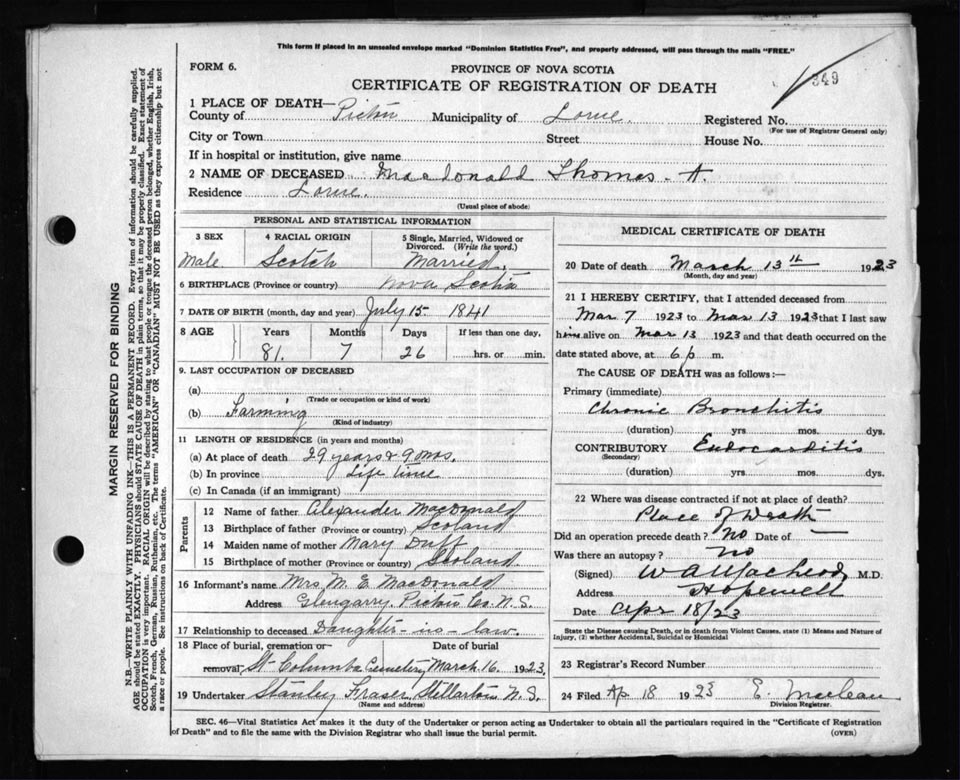 This form if placed in an unsealed envelope marked "Dominion Statistics Free", and properly addressed, will pass through the mails "FREE."
FORM 6.
PROVINCE OF NOVA SCOTIA
349
CERTIFICATE OF REGISTRATION OF DEATH
1 PLACE OF DEATH—
County of Pictou Municipality of Lorne Registered No.
(For use of Registrar General only)
City or Town Street House No.
If in hospital or institution, give name
2 NAME OF DECEASED Macdonald Thomas A.
Residence Lorne.
(Usual place of abode)
PERSONAL AND STATISTICAL INFORMATION
3 SEX 4 RACIAL ORIGIN 5 Single, Married, Widowed or Divorced. (Write the word.)
Male Scotch Married
6 BIRTHPLACE (Province or country) Nova Scotia
7 DATE OF BIRTH (month, day and year) July 15 1841
8 AGE Years Months Days If less than one day,
81. 7 26 hrs. or min.
9. LAST OCCUPATION OF DECEASED
(a)
(Trade or occupation or kind of work)
(b) Farming
(Kind of industry)
11 LENGTH OF RESIDENCE (in years and months)
(a) At place of death 29 years & 9 mos.
(b) In province Life time
(c) In Canada (if an immigrant)
Parents
12 Name of father Alexander Macdonald
13 Birthplace of father (Province or country) Scoland
14 Maiden name of mother Mary Duff
15 Birthplace of mother (Province or country) Scoland
16 Informant's name Mrs M. E. MacDonald
Address Glengarry Pictou Co. N.S.
17 Relationship to deceased Daughter-in-law.
18 Place of burial, cremation or
removal, St Columba Cemetery March 16 1923
19 Undertaker Stanley Fraser, Stellarton N.S.
(Name and address)
MEDICAL CERTIFICATE OF DEATH
20 Date of death March 13th 1923
(Month, day and year)
21 I HEREBY CERTIFY, that I attended deceased from
Mar 7 1923 to Mar 13 1923 that I last saw
him alive on Mar 13 1923 and that death occurred on the
date stated above, at 6 p m.
The CAUSE OF DEATH was as follows:—
Primary (immediate)
Chronic Bronchitis
(duration) yrs mos. dys.
CONTRIBUTORY Endocarditis
(Secondary)
(duration) yrs. mos. dys.
22 Where was disease contracted if not at place of death?
Place of Death
Did an operation precede death? No Date of
Was there an autopsy? No
(Signed) W A MacLeod, M.D.
Address Hopewell
Date Apr 18/23
State the Disease causing Death, or in death from Violent Causes, state (1) Means and Nature of
Injury, (2) whether Accidental, Suicidal or Homicidal
23 Registrar's Record Number
24 Filed Ap 18 1923 E. Maclean
Division Registrar.
SEC. 46—Vital Statistics Act makes it the duty of the Undertaker or person acting as Undertaker to obtain all the particulars required in the "Certificate of Registration
of Death" and to file the same with the Division Registrar who shall issue the burial permit. (OVER)
MARGIN RESERVED FOR BINDING
N.B.—WRITE PLAINLY WITH UNFADING INK—THIS IS A PERMANENT RECORD. Every item of information should be carefully supplied.
AGE should be stated EXACTLY. PHYSICIANS should STATE CAUSE OF DEATH in plain terms, so that it may be properly classified. Exact statement of
OCCUPATION is very important. RACIAL ORIGIN will be described by stating to what people or tongue the deceased person belonged, whether English, Irish,
Scotch, French, German, Russian, Ruthenian, etc. The terms "AMERICAN" OR "CANADIAN" MUST NOT BE USED as they express citizenship but not
a race or people. See instructions on back of Certificate.